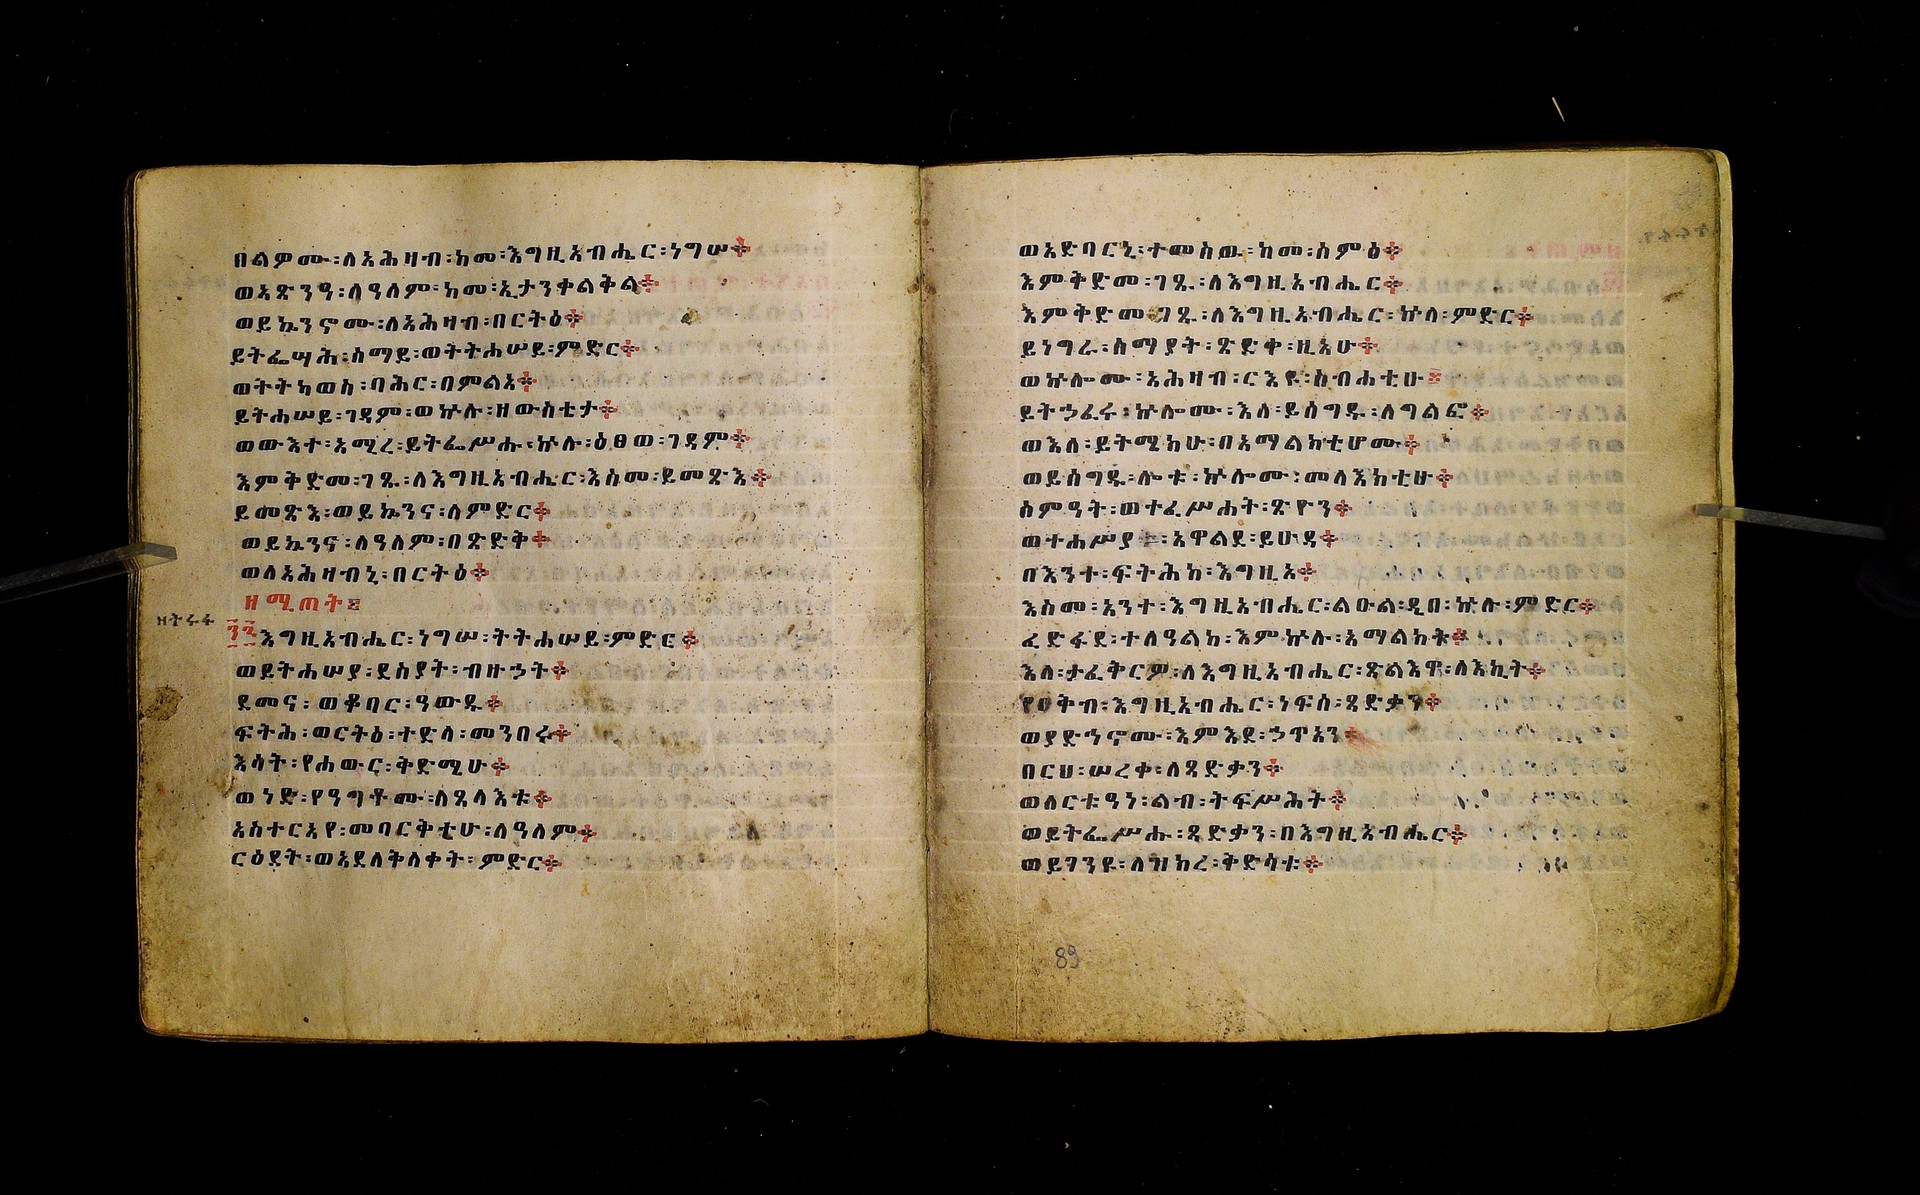 በልዎሙ፡ለአሕዛብ፡ከመ፡እግዚአብሔር፡ነግሠ፨
ወአጽንዓ፡ለዓለም፡ከመ፡ኢታንቀልቅል፨
ወይኴንኖሙ፡ለአሕዛብ፡በርትዕ፨
ይትፌሣሕ፡ሰማይ፡ወትትሐሠይ፡ምድር፨
ወትትከወስ፡ባሕር፡በምልአ፨
ይትሐሠይ፡ገዳም፡ወኵሉ፡ዘውስቴታ፨
ወውእተ፡አሚረ፡ይትፌሥሑ፡ኵሉ፡ዕፀወ፡ገዳም፨
እምቅድመ፡ገጹ፡ለእግዚአብሔር፡እስመ፡ይመጽእ፨
ይመጽእ፡ወይኴንና፡ለምድር፨
ወይኴንና፡ለዓለም፡በጽድቅ፨
ወለአሕዛብኒ፡በርትዕ፨
ዘሚጠት፨
ዘትሩፋ
፺፮እግዚአብሔር፡ነግሠ፡ትትሐሠይ፡ምድር፨
ወይትሐሠያ፡ደሰያት፡ብዙኃት፨
ደመና፡ወቆባር፡ዓውዱ፨
ፍትሕ፡ወርትዕ፡ተድላ፡መንበሩ፨
እሳት፡የሐውር፡ቅድሜሁ፨
ወነድ፡የዓግቶሙ፡ለጸላእቱ፨
አስተርአየ፡መባርቅቲሁ፡ለዓለም፨
ርዕደት፡ወአደለቅለቀት፡ምድር፨
ወአድባርኒ፡ተመስወ፡ከመ፡ሰምዕ፨
እምቅድመ፡ገጹ፡ለእግዚአብሔር፨
እምቅድመ፡ገጹ፡ለእግዚአብሔር፡ኵላ፡ምድር፨
ይነግራ፡ሰማያት፡ጽድቀ፡ዚአሁ፨
ወኵሎሙ፡አሕዛብ፡ርእዩ፡ስብሐቲሁ፨
ይትኃፈሩ፡ኵሎሙ፡እለ፡ይሰግዱ፡ለግልፎ፨
ወእለ፡ይትሜክሁ፡በአማልክቲሆሙ፨
ወይሰግዱ፡ሎቱ፡ኵሎሙ፡መላእክቲሁ፨
ሰምዓት፡ወተፈሥሐት፡ጽዮን፨
ወተሐሥያ፡አዋልደ፡ይሁዳ፨
በእንተ፡ፍትሕከ፡እግዚአ፨
እስመ፡አንተ፡እግዚአብሔር፡ልዑል፡ዲበ፡ኵሉ፡ምድር፨
ፈድፋደ፡ተለዓልከ፡እምኵሉ፡አማልክት፨
እለ፡ታፈቅርዎ፡ለእግዚአብሔር፡ጽልእዋ፡ለእኪት፨
የዐቅብ፡እግዚአብሔር፡ነፍሰ፡ጻድቃን፨
ወያድኅኖሙ፡እምእደ፡ኃጥአን፨
በርሀ፡ሠረቀ፡ለጻድቃን፨
ወለርቱዓነ፡ልብ፡ትፍሥሕት፨
ወይትፌሥሑ፡ጻድቃን፡በእግዚአብሔር፨
ወይገንዩ፡ለዝክረ፡ቅድሳቱ፨
89